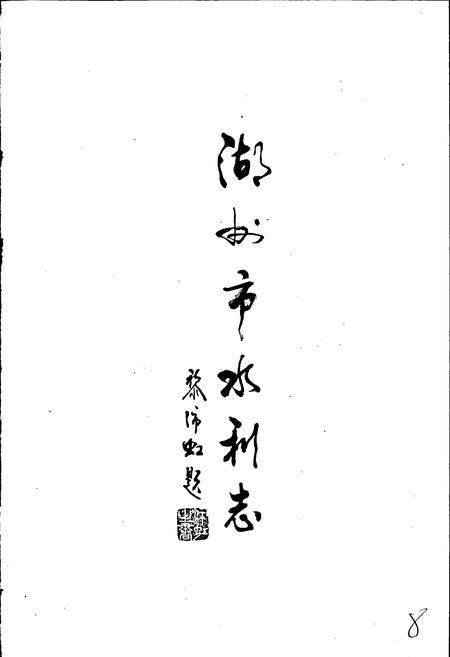 湖州市水利志
黎沛虹题
8